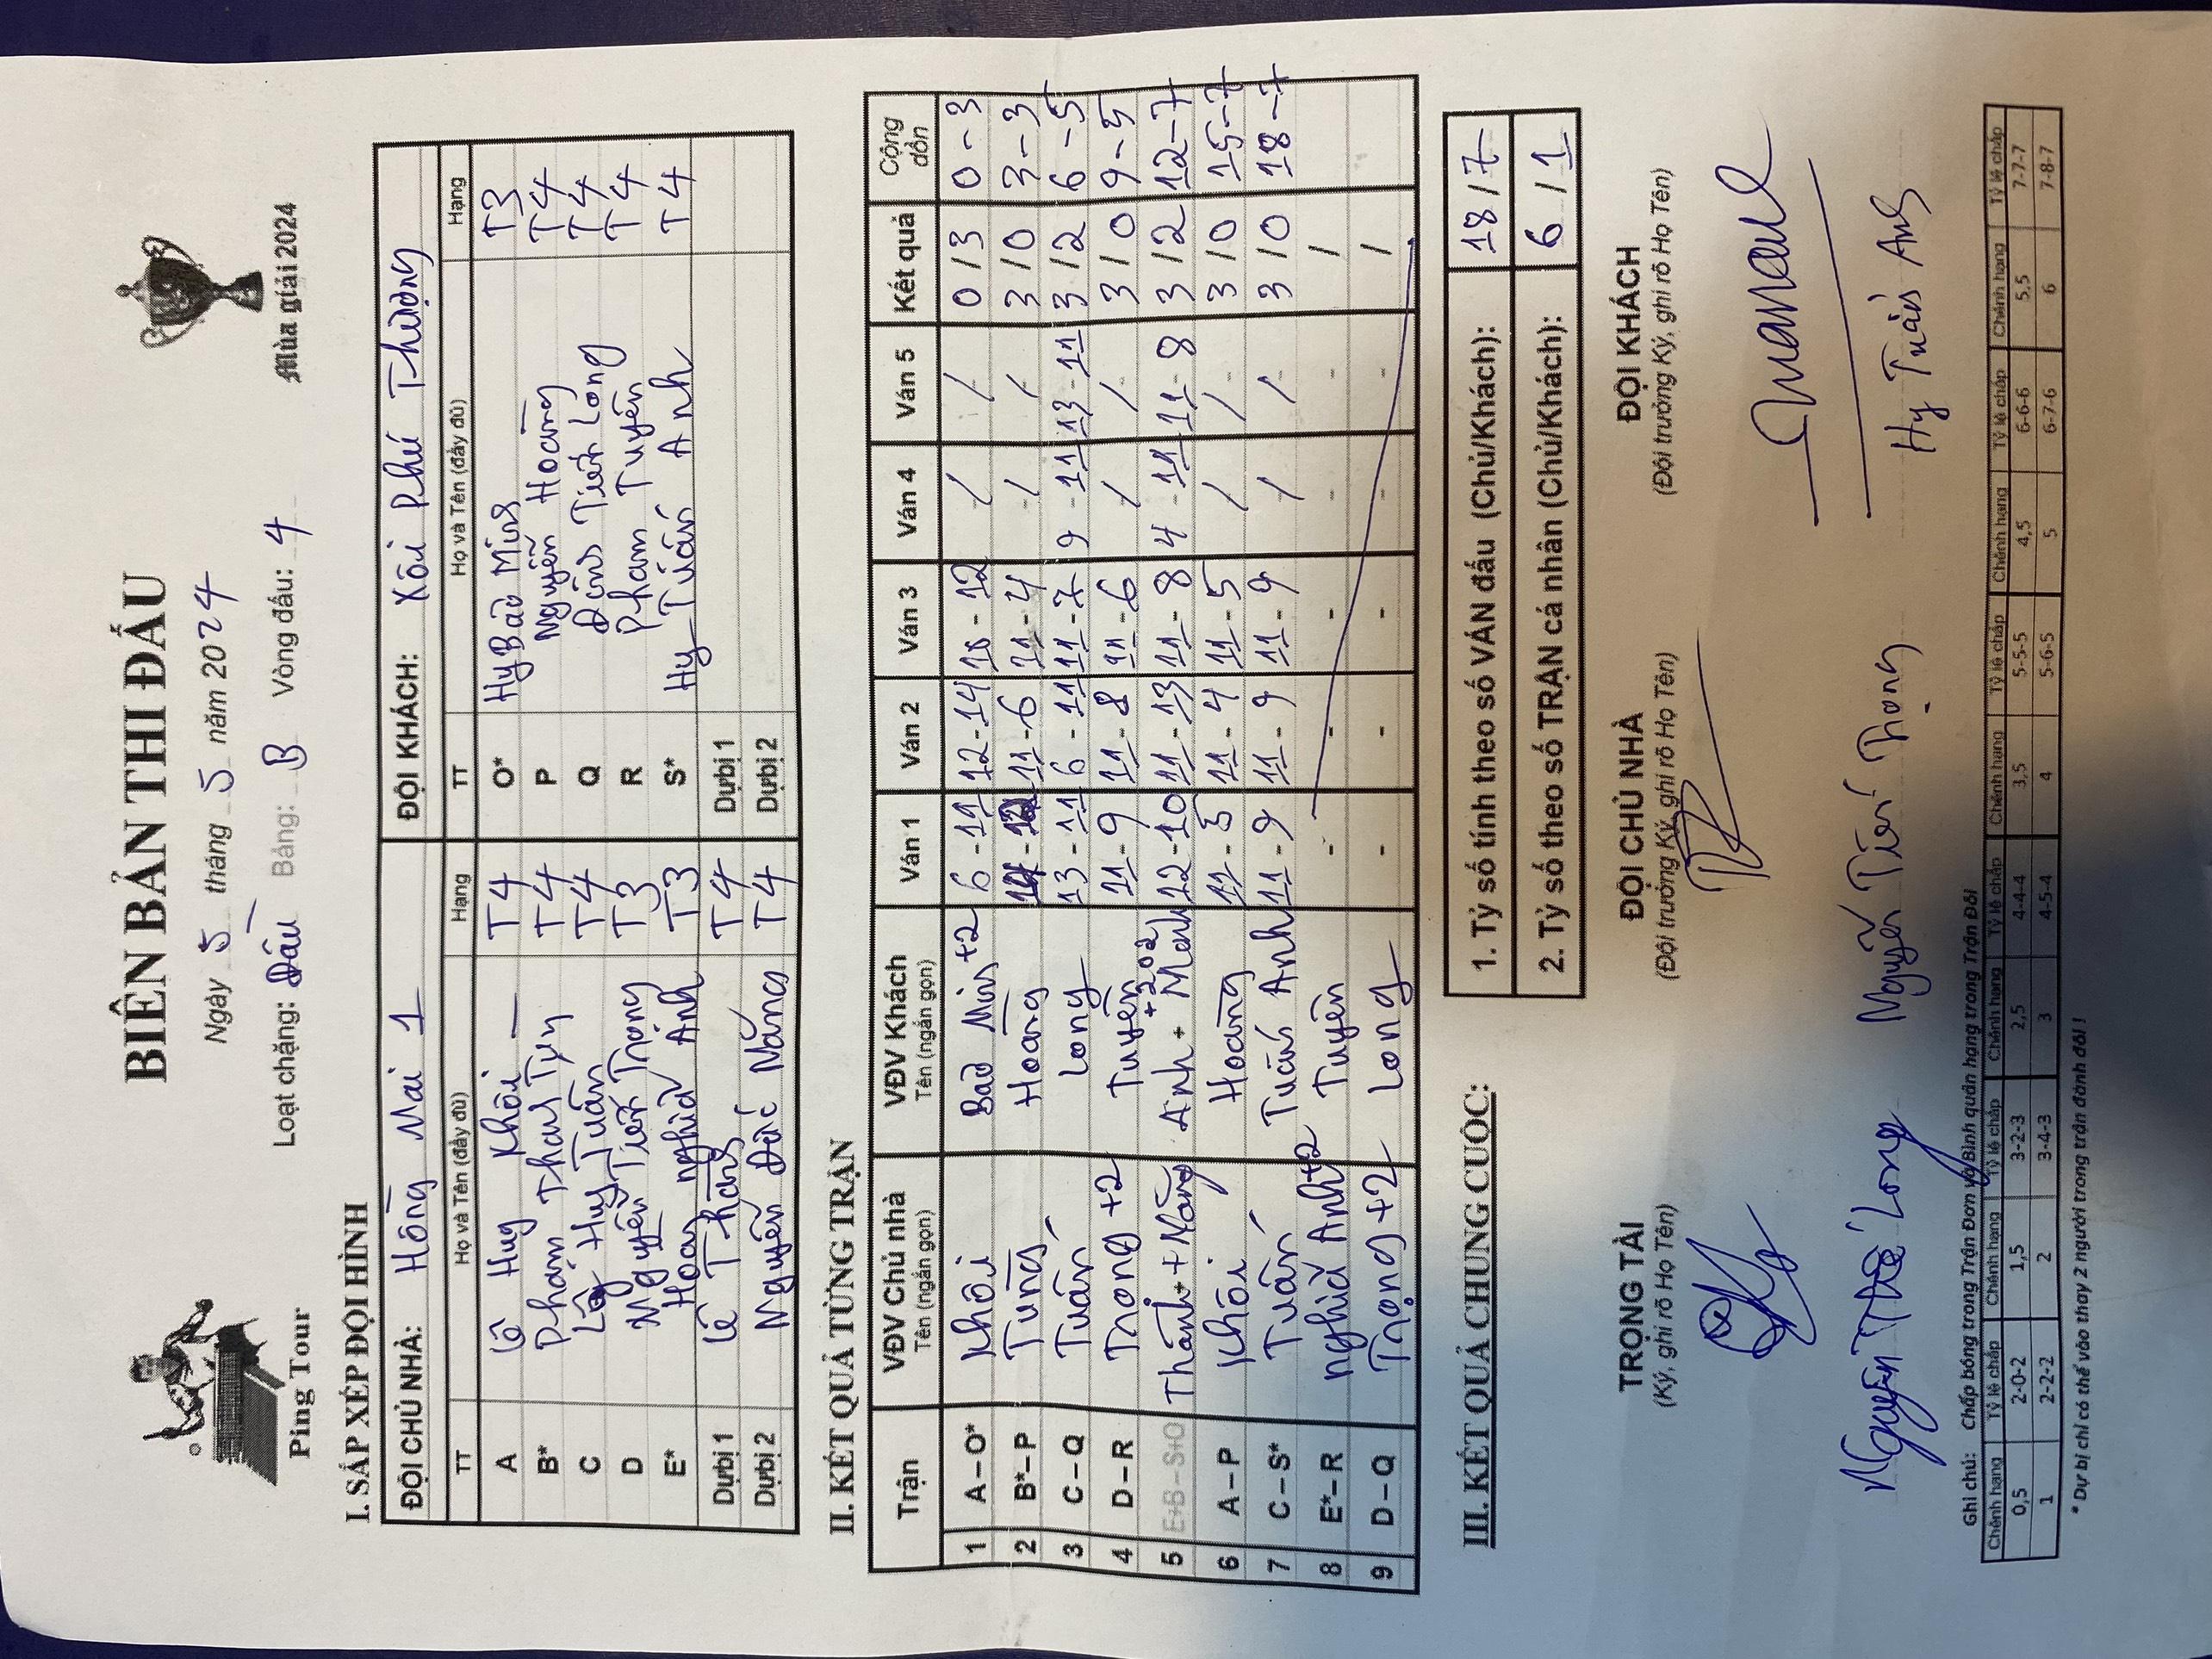 BIÊN BẢN THI ĐẤU
Ngày 5 tháng 5 năm 2024
Loạt chặng: Đầu Bảng: B Vòng đấu: 4
Ping Tour
Mùa giải 2024
I. SẮP XẾP ĐỘI HÌNH
ĐỘI CHỦ NHÀ: Hồng Mai 1 ĐỘI KHÁCH: Xôi Phú Thượng
TT Họ và Tên (đầy đủ) Hạng TT Họ và Tên (đầy đủ) Hạng
A Lê Huy Khôi T4 O* Hy Bảo Minh T3
B* Phạm Thanh Tùng T4 P Nguyễn Hoàng T4
C Lê Huy Tuấn T4 Q Đinh Tiến Long T4
D Nguyễn Tiến Trọng T3 R Phạm Tuyên T4
E* Hoàng Nghĩa Anh T3 S* Hy Tuấn Anh T4
Dự bị 1 Lê Thành T4 Dự bị 1
Dự bị 2 Nguyễn Đức Năng T4 Dự bị 2
II. KẾT QUẢ TỪNG TRẬN
Trận VĐV Chủ nhà Tên (ngắn gọn) VĐV Khách Tên (ngắn gọn) Ván 1 Ván 2 Ván 3 Ván 4 Ván 5 Kết quả Cộng dồn
1 A – O* Khôi Bảo Minh +2 6 - 11 12 - 14 10 - 12 / / 0 / 3 0 - 3
2 B* – P Tùng Hoàng 11 - 6 11 - 4 / / 3 / 0 3 - 3
3 C – Q Tuấn Long 13 - 11 6 - 11 11 - 7 9 - 11 13 - 11 3 / 2 6 - 5
4 D – R Trọng +2 Tuyên 11 - 9 11 - 8 11 - 6 / / 3 / 0 9 - 5
5 E+B – S+O Thành + Năng Anh + Minh +202 12 - 10 11 - 13 11 - 8 4 - 11 11 - 8 3 / 2 12 - 7
6 A – P Khôi Hoàng 11 - 5 11 - 4 11 - 5 / / 3 / 0 15 - 7
7 C – S* Tuấn Tuấn Anh 11 - 9 11 - 9 11 - 9 / / 3 / 0 18 - 7
8 E* – R Nghĩa Anh +2 Tuyên - - - - - /
9 D – Q Trọng +2 Long - - - - - /
III. KẾT QUẢ CHUNG CUỘC:
1. Tỷ số tính theo số VÁN đấu (Chủ/Khách): 18 / 7
2. Tỷ số theo số TRẬN cá nhân (Chủ/Khách): 6 / 1
TRỌNG TÀI ĐỘI CHỦ NHÀ ĐỘI KHÁCH
(Ký, ghi rõ Họ Tên) (Đội trưởng Ký, ghi rõ Họ Tên) (Đội trưởng Ký, ghi rõ Họ Tên)
Nguyễn Thế Long Nguyễn Tiến Trọng Hy Tuấn Anh
Ghi chú: Chấp bóng trong Trận Đơn và Bình quân hạng trong Trận Đôi
Chênh hạng Tỷ lệ chấp Chênh hạng Tỷ lệ chấp Chênh hạng Tỷ lệ chấp Chênh hạng Tỷ lệ chấp Chênh hạng Tỷ lệ chấp Chênh hạng Tỷ lệ chấp
0,5 2-0-2 1,5 3-2-3 2,5 4-4-4 3,5 5-5-5 4,5 6-6-6 5,5 7-7-7
1 2-2-2 2 3-4-3 3 4-5-4 4 5-6-5 5 6-7-6 6 7-8-7
* Dự bị chỉ có thể vào thay 2 người trong trận đánh đôi !